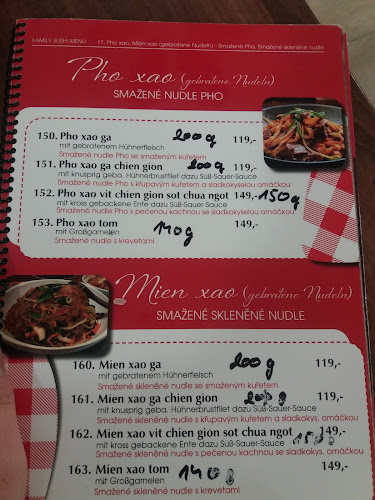 FAMILY SUSHI MENU
17. Pho xao, Mien xao (gebratene Nudeln) - Smažené Pho, Smažené skleněné nudle
Pho xao (gebratene Nudeln)
SMAŽENÉ NUDLE PHO
150. Pho xao ga 200g 119,-
mit gebratenem Hühnerfleisch
Smažené nudle Pho se smaženým kuřetem
151. Pho xao ga chien gion 200g 119,-
mit knusprig geba. Hühnerbrustfilet dazu Süß-Sauer-Sauce
Smažené nudle Pho s křupavým kuřetem a sladkokyselou omáčkou
152. Pho xao vit chien gion sot chua ngot 149,- 150g
mit kross gebackener Ente dazu Süß-Sauer-Sauce
Smažené nudle Pho s pečenou kachnou se sladkokyselou omáčkou
153. Pho xao tom 140g 149,-
mit Großgarnelen
Smažené nudle s krevetami
Mien xao (gebratene Nudeln)
SMAŽENÉ SKLENĚNÉ NUDLE
160. Mien xao ga 200g 119,-
mit gebratenem Hühnerfleisch
Smažené skleněné nudle se smaženým kuřetem
161. Mien xao ga chien gion 200g 119,-
mit knusprig geba. Hühnerbrustfilet dazu Süß-Sauer-Sauce
Smažené skleněné nudle s křupavým kuřetem a sladkokys. omáčkou
162. Mien xao vit chien gion sot chua ngot 149,-
mit kross gebackene Ente dazu Süß-Sauer-Sauce 150g
Smažené skleněné nudle s pečenou kachnou se sladkokys. omáčkou
163. Mien xao tom 140g 149,-
mit Großgarnelen
Smažené skleněné nudle s krevetami